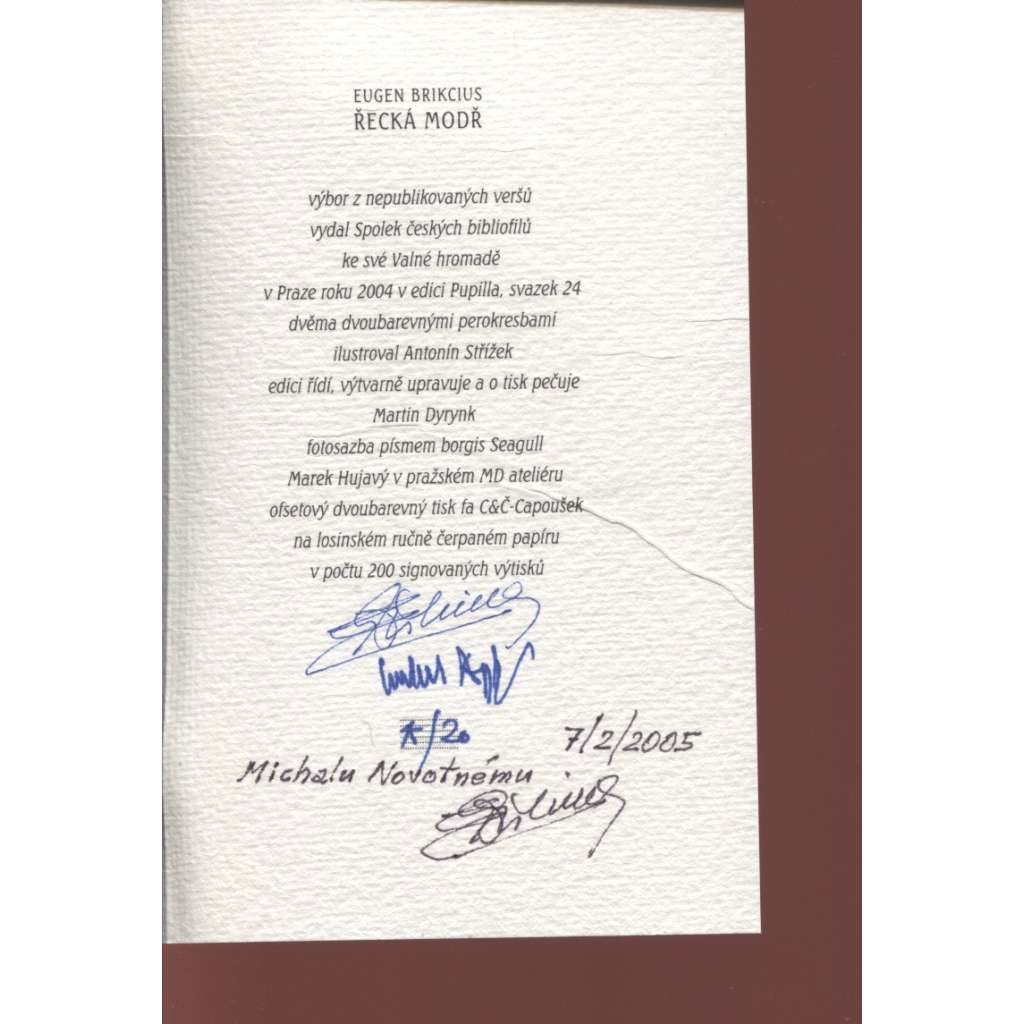 EUGEN BRIKCIUS
ŘECKÁ MODŘ
výbor z nepublikovaných veršů
vydal Spolek českých bibliofilů
ke své Valné hromadě
v Praze roku 2004 v edici Pupilla, svazek 24
dvěma dvoubarevnými perokresbami
ilustroval Antonín Střížek
edici řídí, výtvarně upravuje a o tisk pečuje
Martin Dyrynk
fotosazba písmem borgis Seagull
Marek Hujavý v pražském MD ateliéru
ofsetový dvoubarevný tisk fa C&Č-Capoušek
na losinském ručně čerpaném papíru
v počtu 200 signovaných výtisků
7/2/2005
Michalu Novotnému